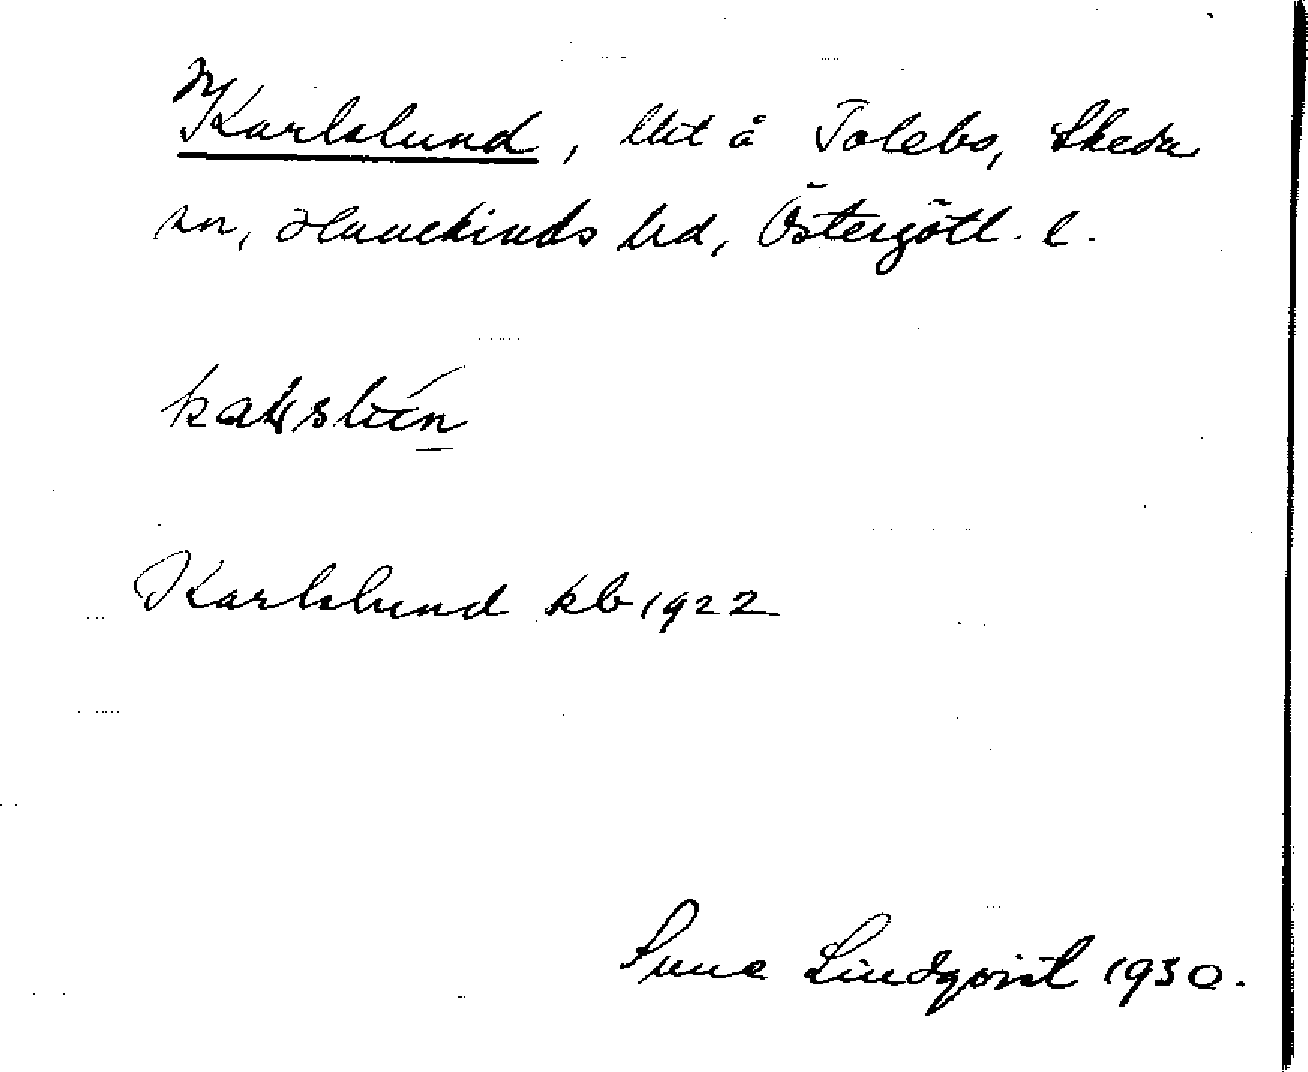 Karlslund, lht å Tolebo, Skeda
sn, Hanekinds hd, Östergötl. l.
Karlslund kb 1922
Sune Lindqvist 1930.